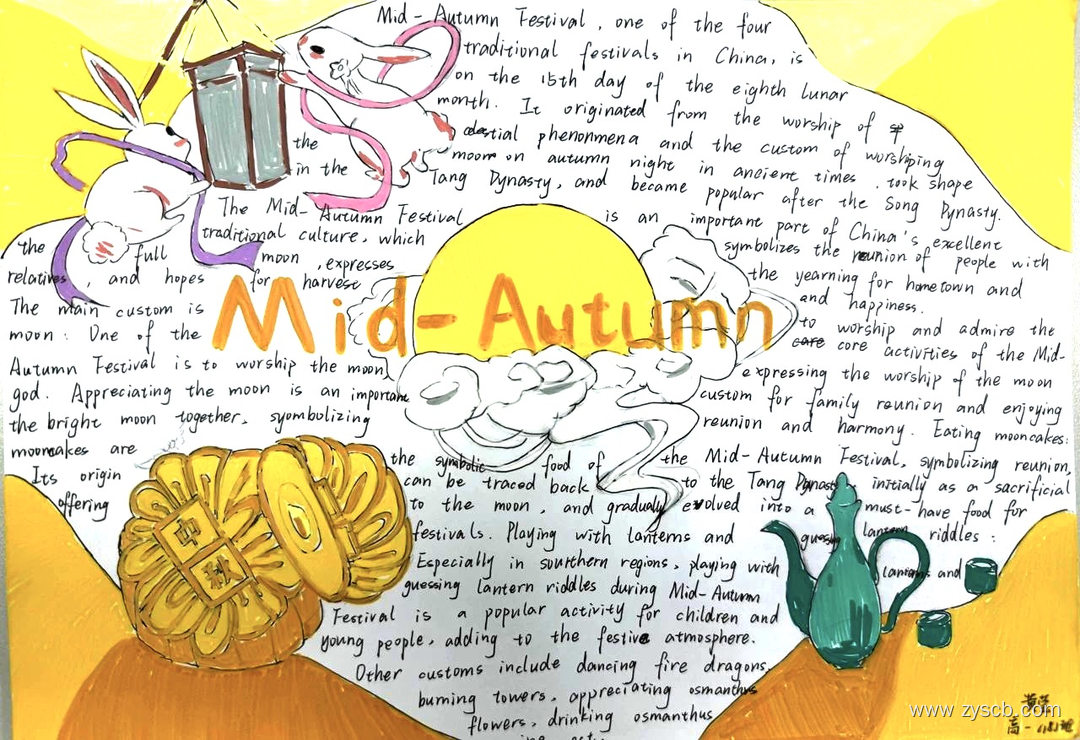 Mid-Autumn Festival, one of the four
traditional festivals in China, is
on the 15th day of the eighth lunar
month. It originated from the worship of
the celestial phenonmena and the custom of worshiping
in the moon on autumn night in ancient times. took shape
Tang Dynasty, and became popular after the Song Dynasty.
The Mid-Autumn Festival is an important part of China's excellent
traditional culture, which symbolizes the reunion of people with
the full moon, expresses the yearning for hometown and
relatives, and hopes for harvest and happiness.
Mid-Autumn
The main custom is to worship and admire the
moon: One of the core activities of the Mid-
Autumn Festival is to worship the moon, expressing the worship of the moon
god. Appreciating the moon is an important custom for family reunion and enjoying
the bright moon together, syombolizing reunion and harmony. Eating mooncakes:
mooncakes are the symbolic food of the Mid-Autumn Festival, symbolizing reunion,
Its origin can be traced back to the Tang Dynasty initially as a sacrificial
offering to the moon, and gradualy evolved into a must-have food for
festivals. Playing with lanterns and guessing lantern riddles:
Especially in southern regions, playing with lanterns and
guessing lantern riddles during Mid-Autumn
Festival is a popular activity for children and
young people, adding to the festive atmosphere.
Other customs include dancing fire dragons,
burning towers, appreciating osmanthus
flowers, drinking osmanthus
中
秋
www.zyscb.com